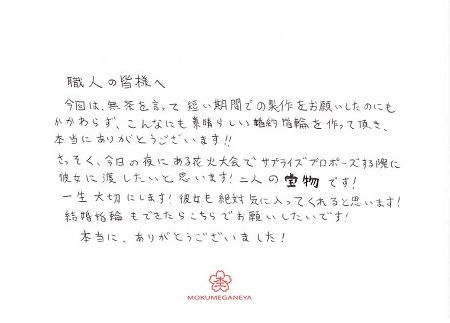 職人の皆様へ
今回は、無茶を言って短い期間での製作をお願いしたのにも
かかわらず、こんなにも素晴らしい婚約指輪を作って頂き、
本当にありがとうございます!!
さっそく、今日の夜にある花火大会でサプライズプロポーズする際に
彼女に渡したいと思います!二人の宝物です!
一生大切にします!彼女も絶対気に入ってくれると思います!
結婚指輪もできたらこちらでお願いしたいです!
本当に、ありがとうございました!
MOKUMEGANEYA